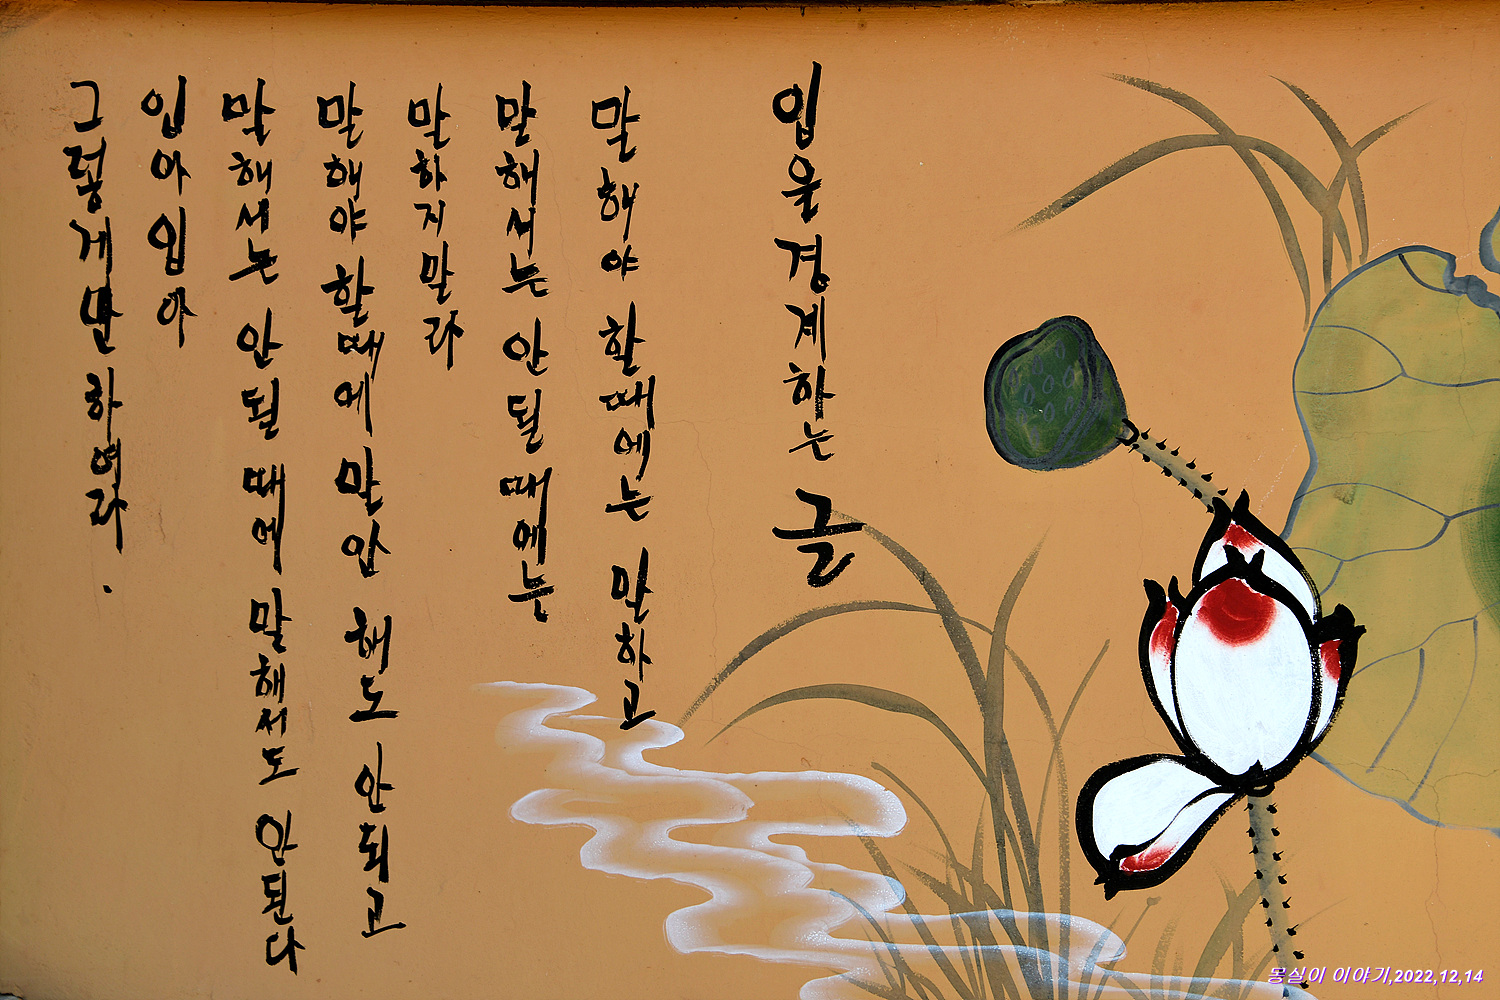 입을 경계하는 글
말해야 할때에는 말하고
말해서는 안될 때에는
말하지말라
말해야 할때에 말안 해도 안되고
말해서는 안될 때에 말해서도 안된다
입아 입아
그렇게만 하여라.
몽실이 이야기,2022,12,14